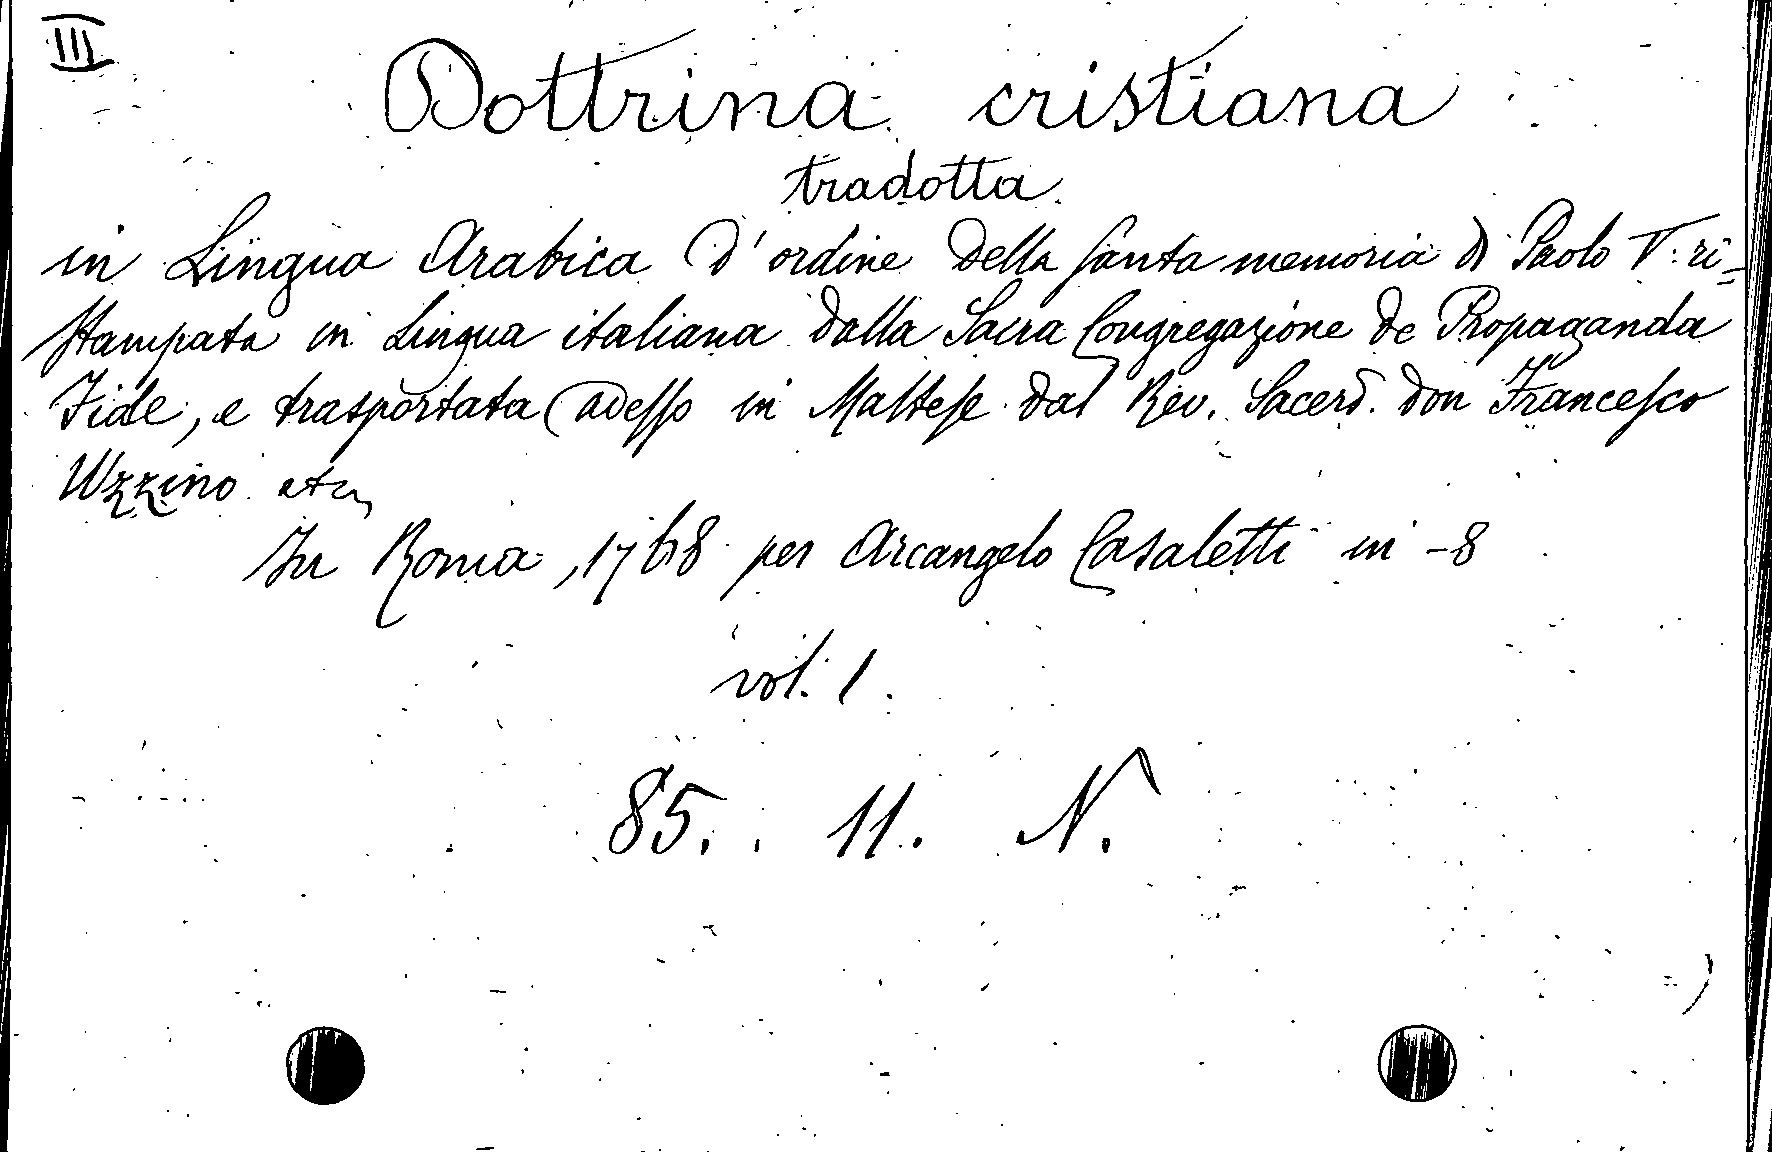 III
Dottrina cristiana
tradotta
in Lingua Arabica d'ordine della santa memoria di Paolo V. ri=
stampata in Lingua italiana dalla Sacra Congregazione de Propaganda
Fide, e trasportata adesso in Maltese dal Rev. Sacerd. Don Francesco
Wzzino etc
In Roma, 1768 per Arcangelo Casaletti in -8
vol. 1.
85. 11. N.